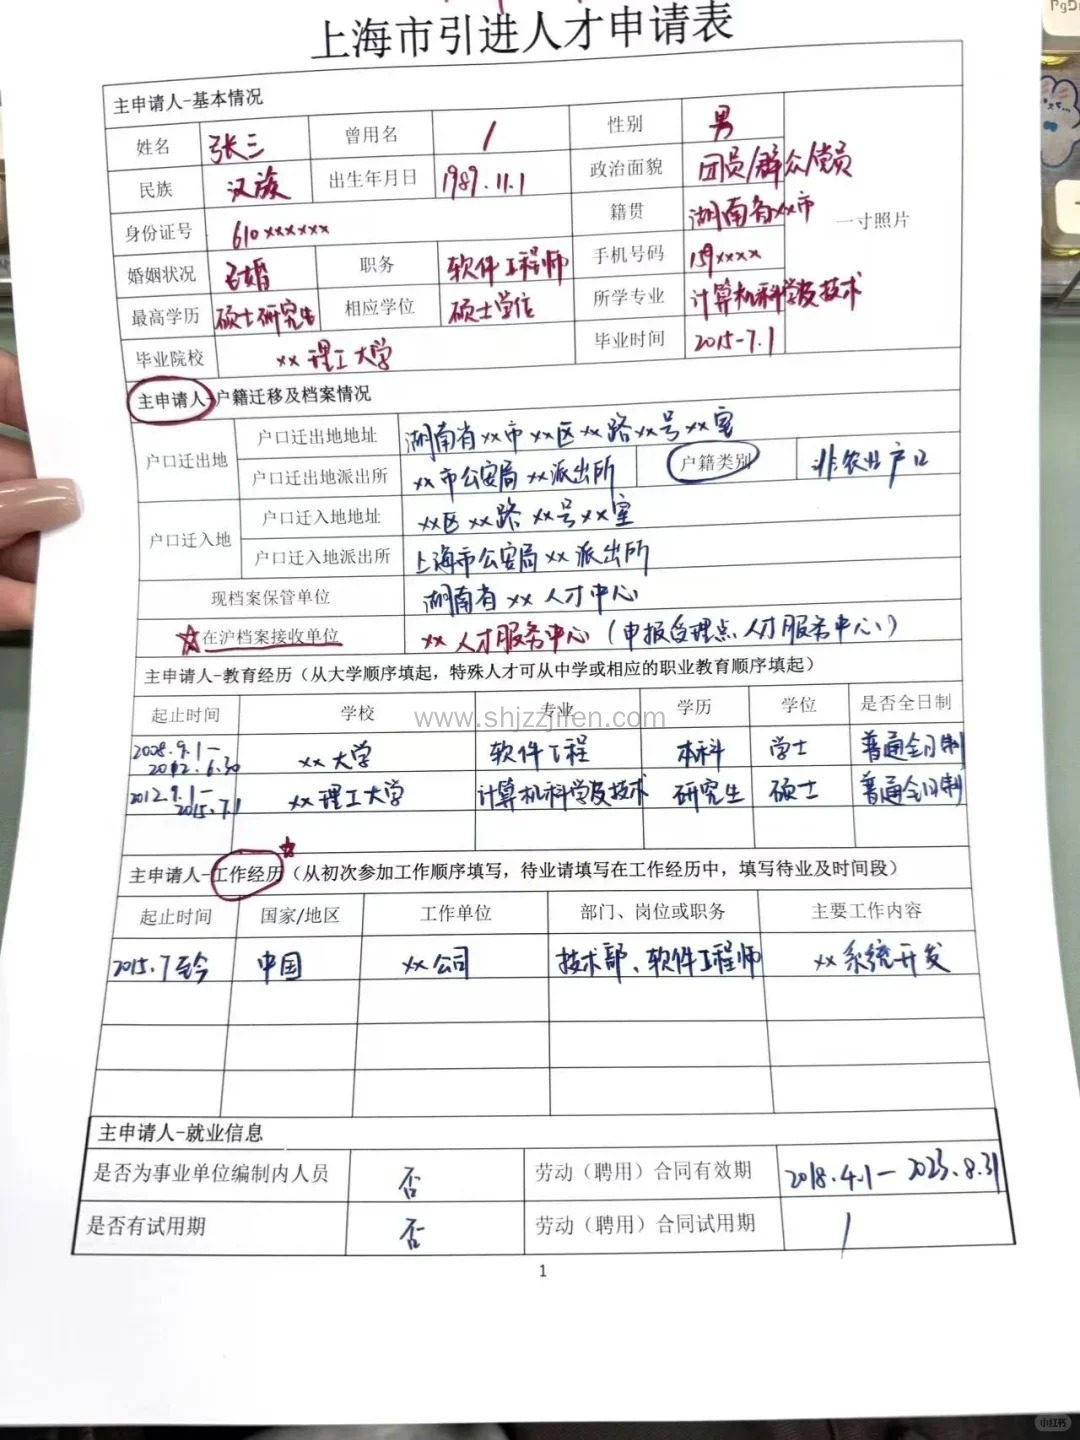 上海市引进人才申请表
主申请人-基本情况
姓名 张三 曾用名 / 性别 男
民族 汉族 出生年月日 1989.11.1 政治面貌 团员/群众/党员
身份证号 610xxxxxx 籍贯 湖南省xx市 一寸照片
婚姻状况 已婚 职务 软件工程师 手机号码 159xxxx
最高学历 硕士研究生 相应学位 硕士学位 所学专业 计算机科学及技术
毕业院校 xx理工大学 毕业时间 2015-7.1
主申请人-户籍迁移及档案情况
户口迁出地 户口迁出地地址 湖南省xx市xx区xx路xx号xx室
户口迁出地派出所 xx市公安局xx派出所 户籍类别 非农业户口
户口迁入地 户口迁入地地址 xx区xx路xx号xx室
户口迁入地派出所 上海市公安局xx派出所
现档案保管单位 湖南省xx人才中心
☆在沪档案接收单位 xx人才服务中心(申报受理点人才服务中心)
主申请人-教育经历(从大学顺序填起,特殊人才可从中学或相应的职业教育顺序填起)
起止时间 学校 专业 学历 学位 是否全日制
www.shjzzjifen.com
2008.9.1-2012.6.30 xx大学 软件工程 本科 学士 普通全日制
2012.9.1-2015.7.1 xx理工大学 计算机科学及技术 研究生 硕士 普通全日制
主申请人-工作经历☆(从初次参加工作顺序填写,待业请填写在工作经历中,填写待业及时间段)
起止时间 国家/地区 工作单位 部门、岗位或职务 主要工作内容
2015.7至今 中国 xx公司 技术部、软件工程师 xx系统开发
主申请人-就业信息
是否为事业单位编制内人员 否 劳动(聘用)合同有效期 2018.4.1-2023.8.31
是否有试用期 否 劳动(聘用)合同试用期 /
1
PgD
小红书